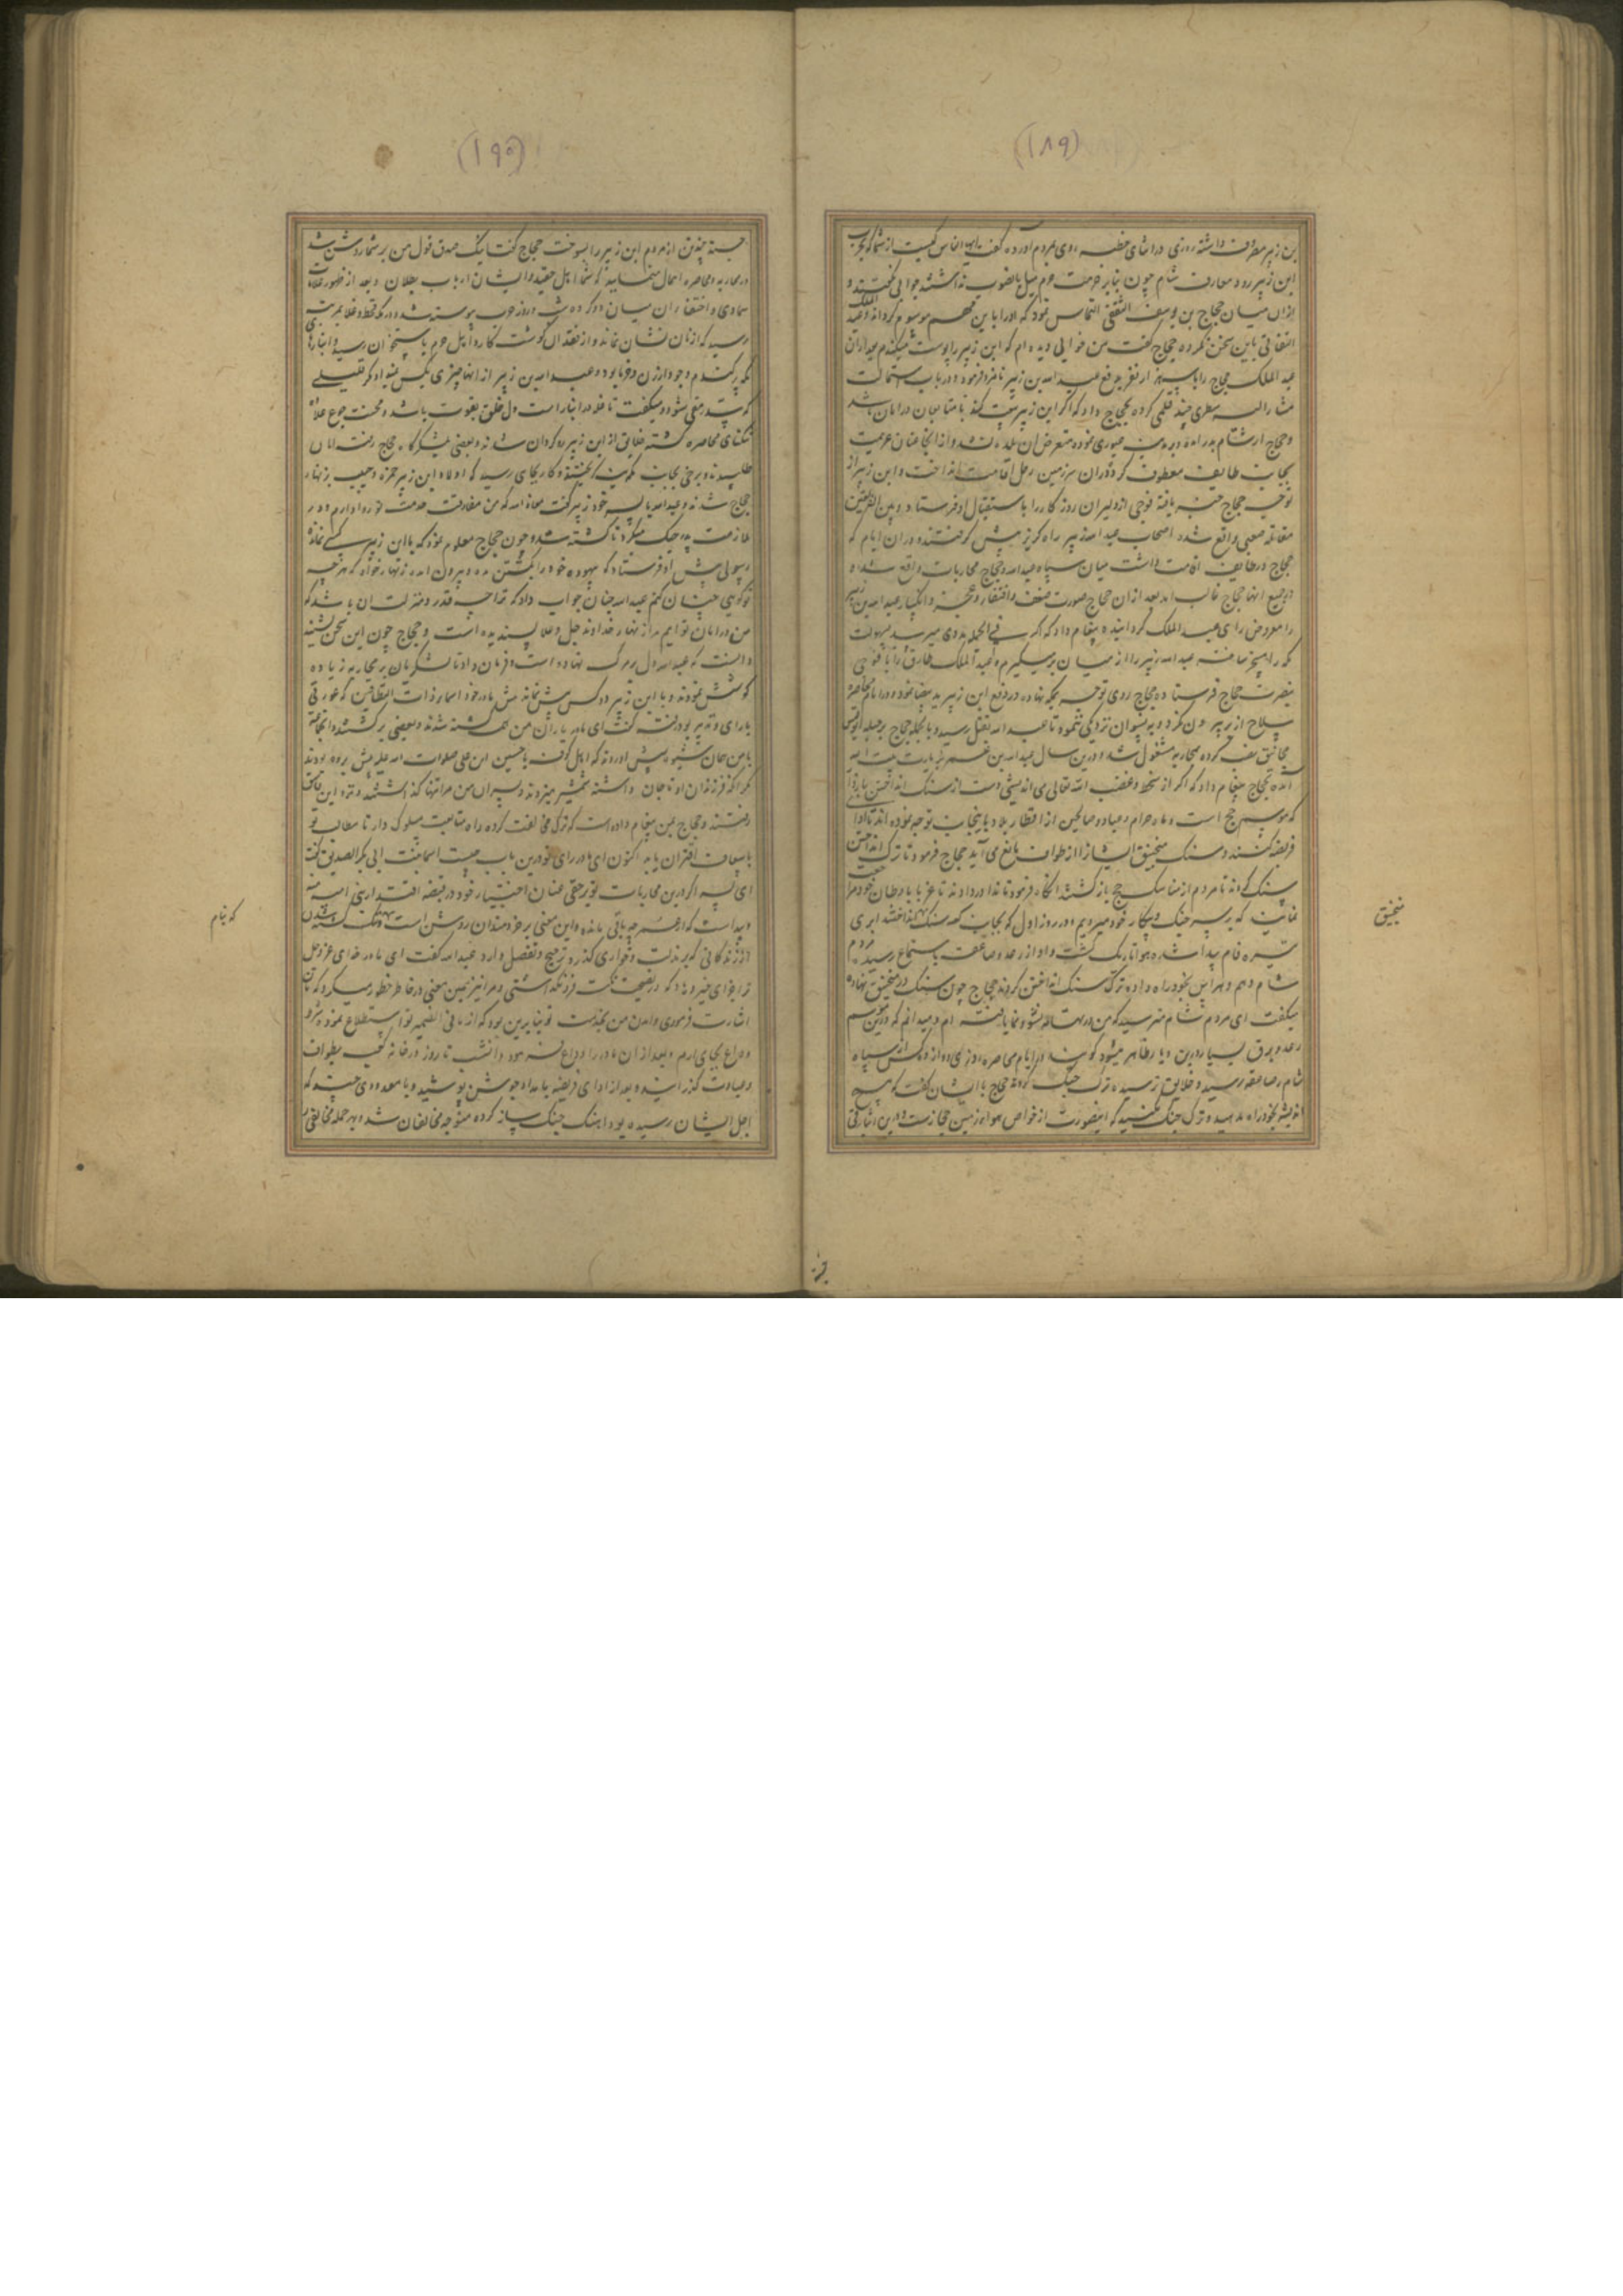 (۱۸۹)
بن زبیر مصروف داشته روزی در اثنای خطبه روی بمردم آورده گفت ایها الناس کیست از شما که بحرب
ابن زبیر رود و معارف شام چون بنابر حرمت حرم میل بانصوب نداشتند جوابی نگفتند و
ازان میان حجاج بن یوسف الثقفی التماس نمود که او را باین مهم موسوم گرداند و عبد الملک
التفاتی باین سخن نکرده حجاج گفت من خوابی دیده ام که ابن زبیر را پوست میکندم بعد ازان
عبد الملک حجاج را با سه هزار نفر بدفع عبد الله بن زبیر نامزد فرمود و در باب استمالت
مشار الیه سطری چند قلمی کرده بحجاج داد که اگر ابن زبیر بیعت کند با متابعان در امان باشد
و حجاج از شام بدر آمده بمدینه عبوری نموده متعرض آن بلده نشد و از آنجا عنان عزیمت
بجانب طایف معطوف کرده دران سرزمین رحل اقامت انداخت و ابن زبیر از
توجه حجاج خبر یافته فوجی از دلیران روزگار را باستقبال او فرستاد و بین الفریقین
مقاتله صعبی واقع شد اصحاب عبد الله زبیر راه گریز پیش گرفتند و دران ایام که
حجاج در طایف اقامت داشت میان سپاه عبد الله و حجاج محاربات واقع شد و
در جمیع آنها حجاج غالب آمد بعد ازان حجاج صورت ضعف و افتقار و عجز و انکسار عبد الله بن زبیر
را معروض رای عبد الملک گردانیده پیغام داد که اگر فی الجمله مددی میرسد بسهولت
مکه را مسخر ساخته عبد الله زبیر را از میان برمیگیرم و عبد الملک طارق را با فوجی
بنصرت حجاج فرستاد و حجاج روی توجه بمکه نهاده در دفع ابن زبیر ید بیضا نمود و در ایام محاصره
سلاح از بر بیرون نکرد و به نسوان نزدیکی ننمود تا عبد الله بقتل رسید و بالجمله حجاج بر جبل ابو قبیس
مجانیق نصب کرده بمحاربه مشغول شد و درین سال عبد الله بن عمر بزیارت بیت الله
آمده بحجاج پیغام داد که اگر از سخط و غضب الله تعالی می اندیشی دست از سنگ انداختن باز دار
که موسم حج است و ماه حرام و عباد و صالحین از اقطار بلاد باینجانب توجه نموده اند تا ادا
فریضه کنند و سنگ منجنیق ایشانرا از طواف مانع می آید حجاج فرمود تا ترک انداختن
سنگ کردند تا مردم از مناسک حج باز گشتند آنگاه فرمود تا ندا در دادند تا غربا باوطان خود مراجعت
نمایند که بر سر جنگ و پیکار خود میرویم و در روز اول که بجانب کعبه سنگ انداختند ابری
تیره فام پیدا شده هوا تاریک گشت و آواز رعد و صاعقه باستماع رسید مردم
شام وهم و هراس بخود راه داده ترک سنگ انداختن کردند حجاج چون سنگ در منجنیق نهاده
میگفت ای مردم شام مترسید که من در تهامه نشو و نما یافته ام و میدانم که درین موسم
رعد و برق بسیار درین دیار ظاهر میشود گویند در ایام محاصره روزی دوازده کس از سپاه
شام را صاعقه رسید و خلایق ترسیده ترک جنگ کردند حجاج با ایشان گفت که هیچ
اندیشه بخود راه مدهید و ترک جنگ مکنید که اینصورت از خواص هوای زمین حجازست و درین اثنا برقی
منجنیق
(۱۹۰)
جسته چندتن از مردم ابن زبیر را بسوخت حجاج گفت اینک صدق قول من بر شما روشن شد
در محاربه و محاصره اهمال منمایید که شما اهل حقید و ایشان ارباب بطلان و بعد از ظهور علامات
سماوی و اختفاء آن میان دو گروه شب و روز حرب پیوسته شد و در مکه قحط و غلا بمرتبه
رسید که از نان نشان نماند و از فقدان گوشت کارد اهل حرم باستخوان رسید و انبارهای
مکه پر گندم و جو و ارزن و خرما بود و عبد الله بن زبیر از آنها چیزی بکس نمیداد مگر قلیلی
که سد رمقی شود و میگفت تا غله در انبار است دل خلق بقوت باشد و محنت جوع علاوه
تنگنای محاصره گشته خلایق از ابن زبیر رو گردان شدند و بعضی بلشکرگاه حجاج رفته امان
طلبیدند و برخی بجانب مدینه گریختند و کار بجای رسید که اولاد ابن زبیر حمزه و حبیب بزنهار
حجاج شدند و عبد الله با پسر خود زبیر گفت معاذ الله که من مفارقت خدمت تو روا دارم و در
ملازمت پدر جنگ میکرد تا کشته شد و چون حجاج معلوم نمود که با ابن زبیر کسی نمانده
رسولی پیش او فرستاد که بیهوده خود را بکشتن مده و بیرون آمده زنهار خواه که هر چه
تو گوئی چنان کنم عبد الله چنان جواب داد که ترا چه قدر و منزلت آن باشد که
من در امان تو آیم مرا زنهار خداوند جل و علا پسندیده است و حجاج چون این سخن شنید
دانست که عبد الله دل بر مرگ نهاده است و فرمان داد تا لشکریان بر محاربه زیاده
کوشش نمودند و با ابن زبیر دو کس بیش نماند پیش مادر خود اسماء ذات النطاقین که عورتی
بارای و تدبیر بود رفته گفت ای مادر یاران من همه کشته شدند و بعضی برگشتند و آنچه
با من همان شیوه پیش آوردند که اهل کوفه با حسین ابن علی صلوات الله علیه پیش برده بودند
مگر آنکه فرزندان او تا جان داشتند شمشیر میزدند و پسران من مرا تنها گذاشتند و نزد این فاسق
رفتند و حجاج بمن پیغام داده است که ترک مخالفت کرده راه متابعت مسلوک دار تا مطالب تو
باسعاف اقتران یابد اکنون ای مادر رای تو درین باب چیست اسما بنت ابی بکر الصدیق گفت
ای پسر اگر درین محاربات تو بر حقی عنان اختیار خود در قبضه اقتدار بنی امیه منه
پیداست که از عمر چه باقی مانده و این معنی بر خردمندان روشن است که بنیکنامی کشته شدن
از زندگانی که بر مذلت و خواری گذرد ترجیح و تفضیل دارد عبد الله گفت ای مادر خدای عز و جل
ترا جزای خیر دهاد که در نصیحت هیچ دقیقه فرو نگذاشتی و مرا نیز همین معنی در خاطر خطور میکرد که بآن
اشارت فرمودی و آمدن من بخدمت تو بنابرین بود که از ما فی الضمیر تو استطلاع نموده شرط
وداع بجای آرم و بعد ازان مادر را وداع نمود و آنشب تا روز در خانه کعبه بطواف
و عبادت گذرانید و بعد از ادای فریضه بامداد جوشن پوشید و با معدودی چند که
اجل ایشان رسیده بود آهنگ جنگ ساز کرده متوجه مخالفان شد و بهر حمله مخالفی
که بنام